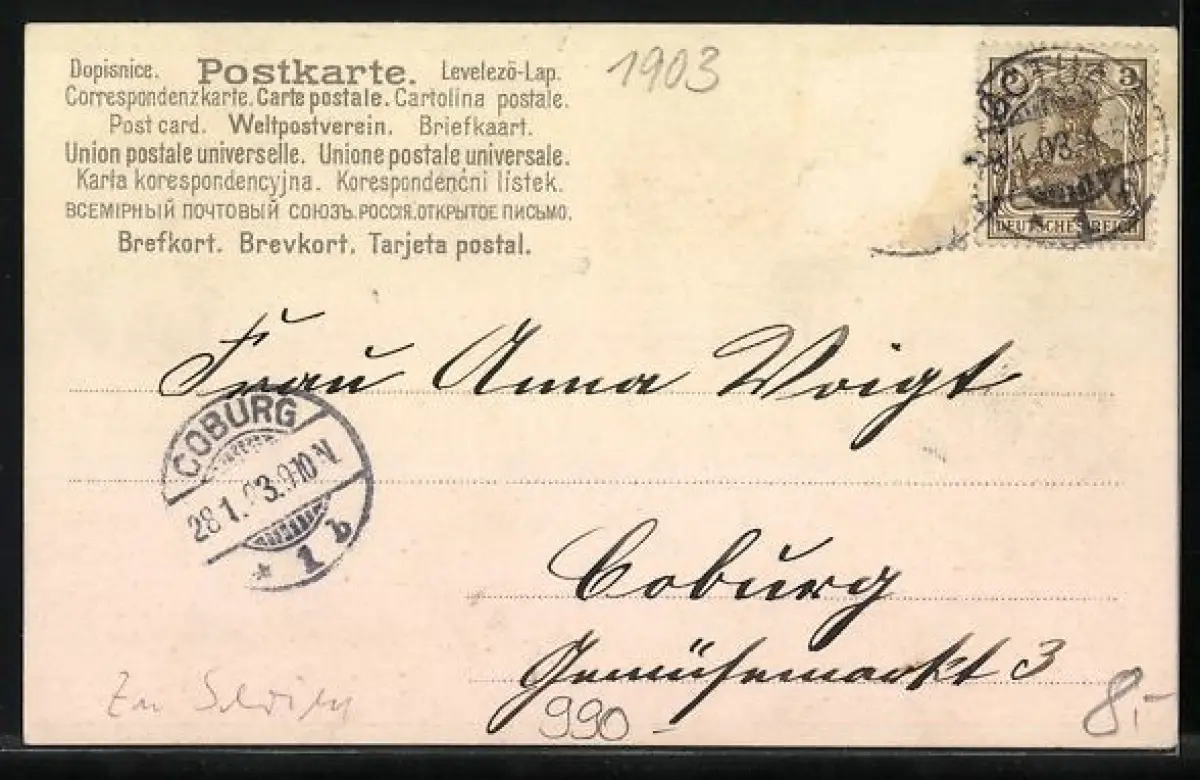 Dopisnice. Postkarte. Levelezö-Lap.
Correspondenzkarte. Carte postale. Cartolina postale.
Post card. Weltpostverein. Briefkaart.
Union postale universelle. Unione postale universale.
Karta korespondencyjna. Korespondenční lístek.
ВСЕМІРНЫЙ ПОЧТОВЫЙ СОЮЗЪ. РОССІЯ. ОТКРЫТОЕ ПИСЬМО.
Brefkort. Brevkort. Tarjeta postal.
1903
3
1.03
DEUTSCHES REICH
Frau Anna Voigt
COBURG
28.1.03. 9-10 N.
* 1 b
Coburg
Gemüsemarkt 3
990-
8.-